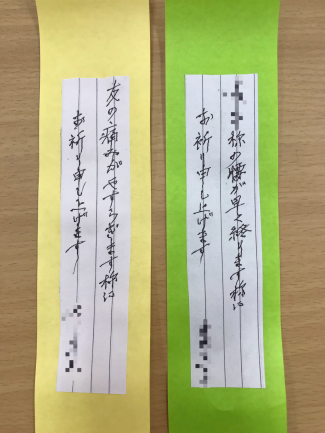 様の腰が早くります様に
お祈り申し上げます
友の痛みがやすらぎます様に
お祈り申し上げます